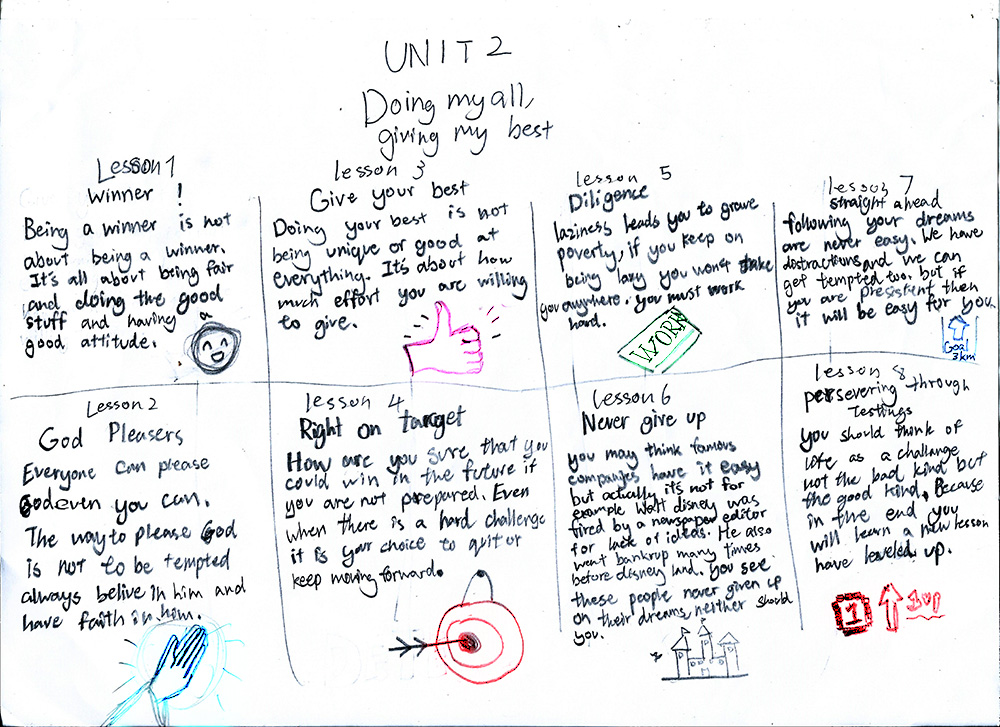 UNIT 2
Doing my all,
giving my best
Lesson 1
Winner !
Being a winner is not
about being a winner.
It's all about being fair
and doing the good
stuff and having a
good attitude.
Lesson 2
God Pleasers
Everyone can please
God even you can.
The way to please God
is not to be tempted
always belive in him and
have faith in him.
lesson 3
Give your best
Doing your best is not
being unique or good at
everything. It's about how
much effort you are willing
to give.
lesson 4
Right on target
How are you sure that you
could win in the future if
you are not prepared. Even
when there is a hard challenge
it is your choice to quit or
keep moving forward.
lesson 5
Diligence
laziness leads you to grave
poverty, if you keep on
being lazy you won't take
you anywhere. you must work
hard.
WORK
Lesson 6
Never give up
you may think famous
companies have it easy
but actually it's not for
example Walt disney was
fired by a newspaper editor
for lack of ideas. He also
went bankrup many times
before disney land. you see
these people never given up
on their dreams, neither should
you.
lesson 7
straight ahead
following your dreams
are never easy. We have
distractions and we can
get tempted too. but if
you are presistent then
it will be easy for you
Goal
3km
lesson 8
persevering through
Testings
you should think of
life as a challenge
not the bad kind but
the good kind. Because
in the end you
will learn a new lesson
have leveled up.
1
1up